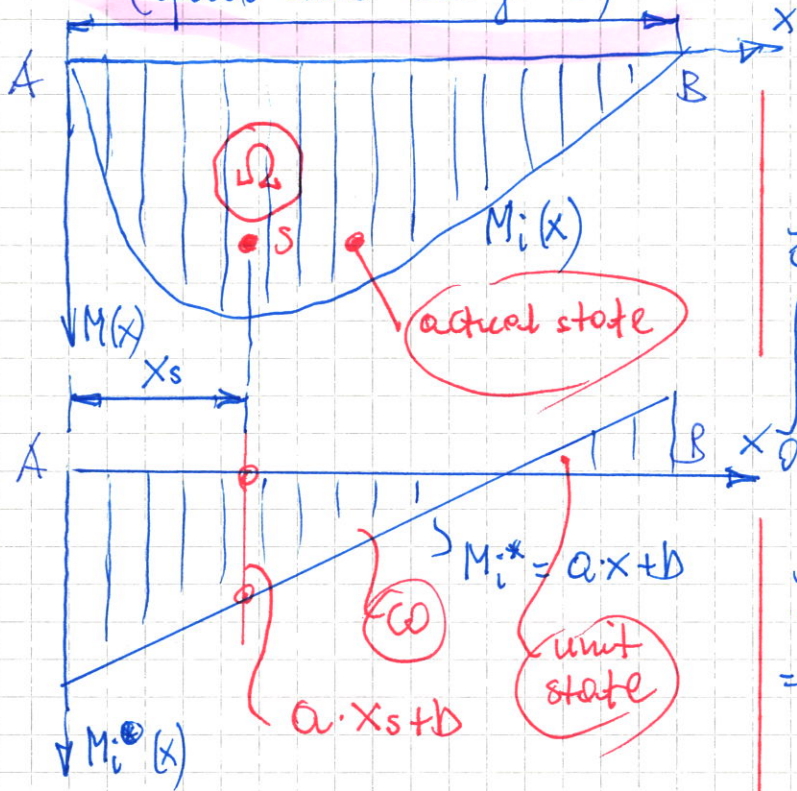 x
A
B
Ω
S
Mi(x)
actual state
M(x)
Xs
A
B
x
Mi* = a·x+b
ω
unit
state
a·Xs+b
Mi*(x)